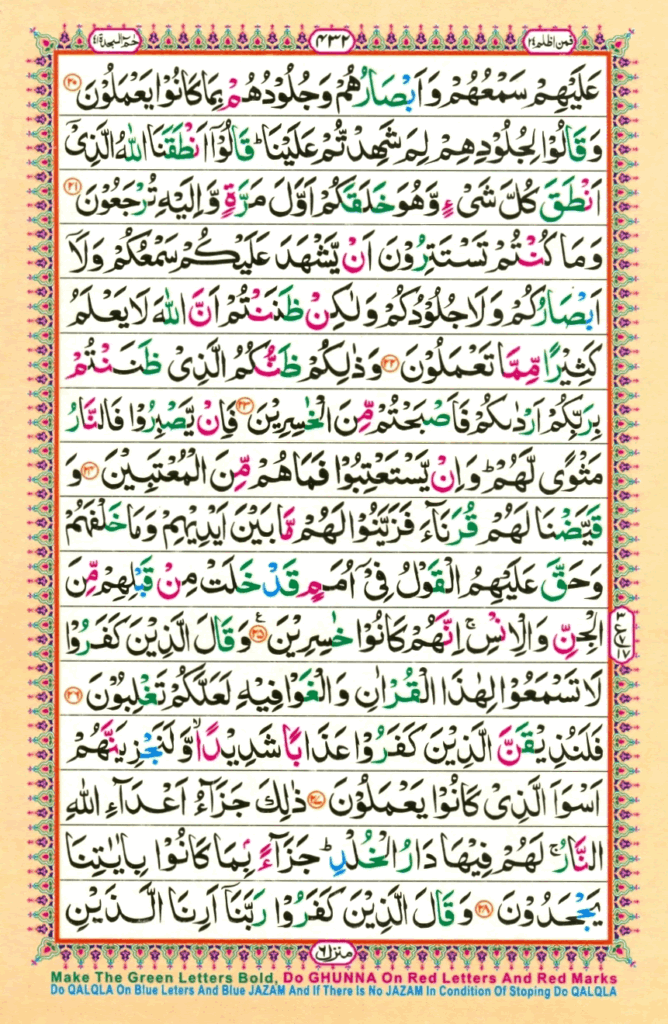 فمن اظلم ۲۴
۴۳۲
حٰمٓ السجدۃ ۴۱
عَلَيْهِمْ سَمْعُهُمْ وَاَبْصَارُهُمْ وَجُلُوْدُهُمْ بِمَا كَانُوْا يَعْمَلُوْنَ ﴿۲۰﴾
وَقَالُوْا لِجُلُوْدِهِمْ لِمَ شَهِدْتُّمْ عَلَيْنَا ؕ قَالُوْۤا اَنْطَقَنَا اللّٰهُ الَّذِىْۤ
اَنْطَقَ كُلَّ شَىْءٍ وَّهُوَ خَلَقَكُمْ اَوَّلَ مَرَّةٍ وَّاِلَيْهِ تُرْجَعُوْنَ ﴿۲۱﴾
وَمَا كُنْتُمْ تَسْتَتِرُوْنَ اَنْ يَّشْهَدَ عَلَيْكُمْ سَمْعُكُمْ وَلَاۤ
اَبْصَارُكُمْ وَلَا جُلُوْدُكُمْ وَلٰكِنْ ظَنَنْتُمْ اَنَّ اللّٰهَ لَا يَعْلَمُ
كَثِيْرًا مِّمَّا تَعْمَلُوْنَ ﴿۲۲﴾ وَذٰلِكُمْ ظَنُّكُمُ الَّذِىْ ظَنَنْتُمْ
بِرَبِّكُمْ اَرْدٰىكُمْ فَاَصْبَحْتُمْ مِّنَ الْخٰسِرِيْنَ ﴿۲۳﴾ فَاِنْ يَّصْبِرُوْا فَالنَّارُ
مَثْوًى لَّهُمْ ؕ وَاِنْ يَّسْتَعْتِبُوْا فَمَا هُمْ مِّنَ الْمُعْتَبِيْنَ ﴿۲۴﴾ وَ
قَيَّضْنَا لَهُمْ قُرَنَآءَ فَزَيَّنُوْا لَهُمْ مَّا بَيْنَ اَيْدِيْهِمْ وَمَا خَلْفَهُمْ
وَحَقَّ عَلَيْهِمُ الْقَوْلُ فِىْۤ اُمَمٍ قَدْ خَلَتْ مِنْ قَبْلِهِمْ مِّنَ
الْجِنِّ وَالْاِنْسِ ۚ اِنَّهُمْ كَانُوْا خٰسِرِيْنَ ﴿۲۵﴾ ع وَقَالَ الَّذِيْنَ كَفَرُوْا
لَا تَسْمَعُوْا لِهٰذَا الْقُرْاٰنِ وَالْغَوْا فِيْهِ لَعَلَّكُمْ تَغْلِبُوْنَ ﴿۲۶﴾
فَلَنُذِيْقَنَّ الَّذِيْنَ كَفَرُوْا عَذَابًا شَدِيْدًا ۙ وَّلَنَجْزِيَنَّهُمْ
اَسْوَاَ الَّذِىْ كَانُوْا يَعْمَلُوْنَ ﴿۲۷﴾ ذٰلِكَ جَزَآءُ اَعْدَآءِ اللّٰهِ
النَّارُ ۚ لَهُمْ فِيْهَا دَارُ الْخُلْدِ ؕ جَزَآءًۢ بِمَا كَانُوْا بِاٰيٰتِنَا
يَجْحَدُوْنَ ﴿۲۸﴾ وَقَالَ الَّذِيْنَ كَفَرُوْا رَبَّنَاۤ اَرِنَا الَّذَيْنِ
منزل ۶
Make The Green Letters Bold, Do GHUNNA On Red Letters And Red Marks
Do QALQLA On Blue Leters And Blue JAZAM And If There Is No JAZAM In Condition Of Stoping Do QALQLA